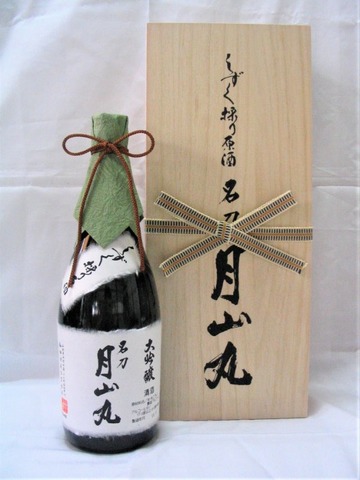 しずく採り原酒
名刀
月山丸
しずく採り
大吟醸
清酒
名刀
月山丸